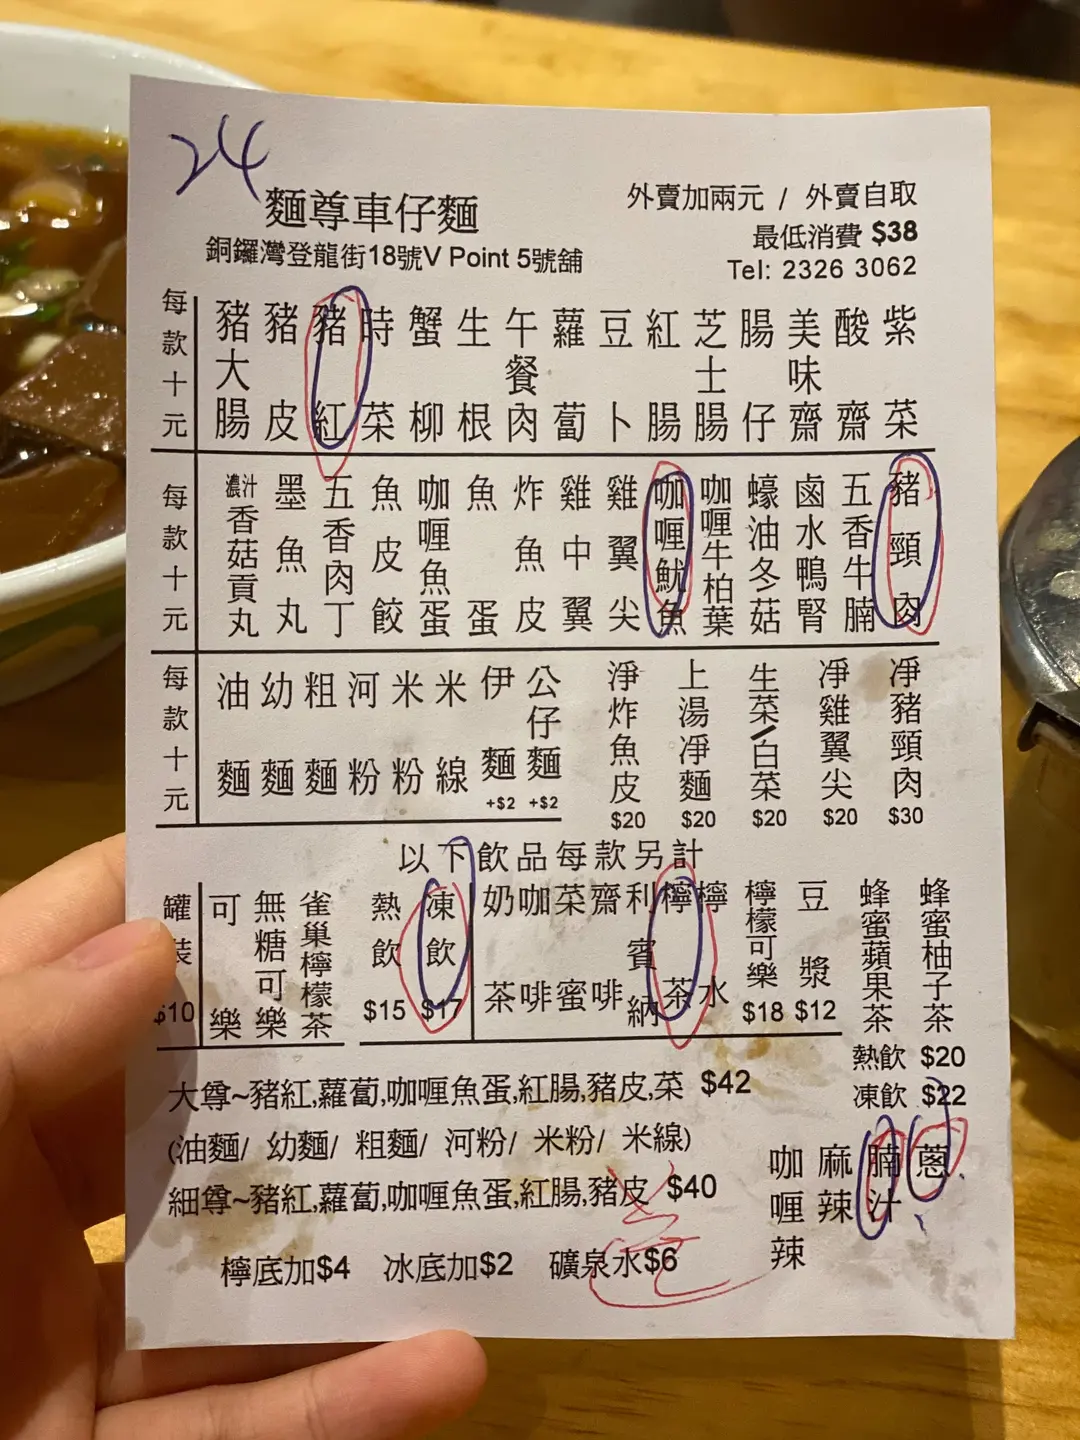 24
麵尊車仔麵
銅鑼灣登龍街18號V Point 5號舖
外賣加兩元 / 外賣自取
最低消費 $38
Tel: 2326 3062
每款十元
豬大腸
豬皮
豬紅
時菜
蟹柳
生根
午餐肉
蘿蔔
豆卜
紅腸
芝士腸
腸仔
美味齋
酸齋
紫菜
每款十元
濃汁香菇貢丸
墨魚丸
五香肉丁
魚皮餃
咖喱魚蛋
魚蛋
炸魚皮
雞中翼
雞翼尖
咖喱魷魚
咖喱牛柏葉
蠔油冬菇
鹵水鴨腎
五香牛腩
豬頸肉
每款十元
油麵
幼麵
粗麵
河粉
米粉
米線
伊麵 +$2
公仔麵 +$2
淨炸魚皮 $20
上湯淨麵 $20
生菜/白菜 $20
淨雞翼尖 $20
淨豬頸肉 $30
以下飲品每款另計
罐裝 $10
可樂
無糖可樂
雀巢檸檬茶
熱飲 $15
凍飲 $17
奶茶
咖啡
菜蜜
齋啡
利賓納
檸茶
檸水
檸檬可樂 $18
豆漿 $12
蜂蜜蘋果茶
蜂蜜柚子茶
熱飲 $20
凍飲 $22
大尊~豬紅,蘿蔔,咖喱魚蛋,紅腸,豬皮,菜 $42
(油麵/ 幼麵/ 粗麵/ 河粉/ 米粉/ 米線)
細尊~豬紅,蘿蔔,咖喱魚蛋,紅腸,豬皮 $40
檸底加$4 冰底加$2 礦泉水$6
咖喱辣
麻辣
腩汁
蔥